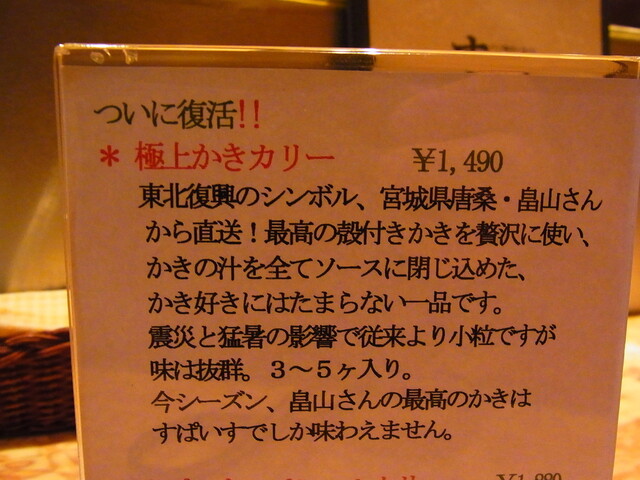 ついに復活!!
＊極上かきカリー ￥1,490
東北復興のシンボル、宮城県唐桑・畠山さん
から直送！最高の殻付きかきを贅沢に使い、
かきの汁を全てソースに閉じ込めた、
かき好きにはたまらない一品です。
震災と猛暑の影響で従来より小粒ですが
味は抜群。３～５ヶ入り。
今シーズン、畠山さんの最高のかきは
すぱいすでしか味わえません。
カリー ￥1,880